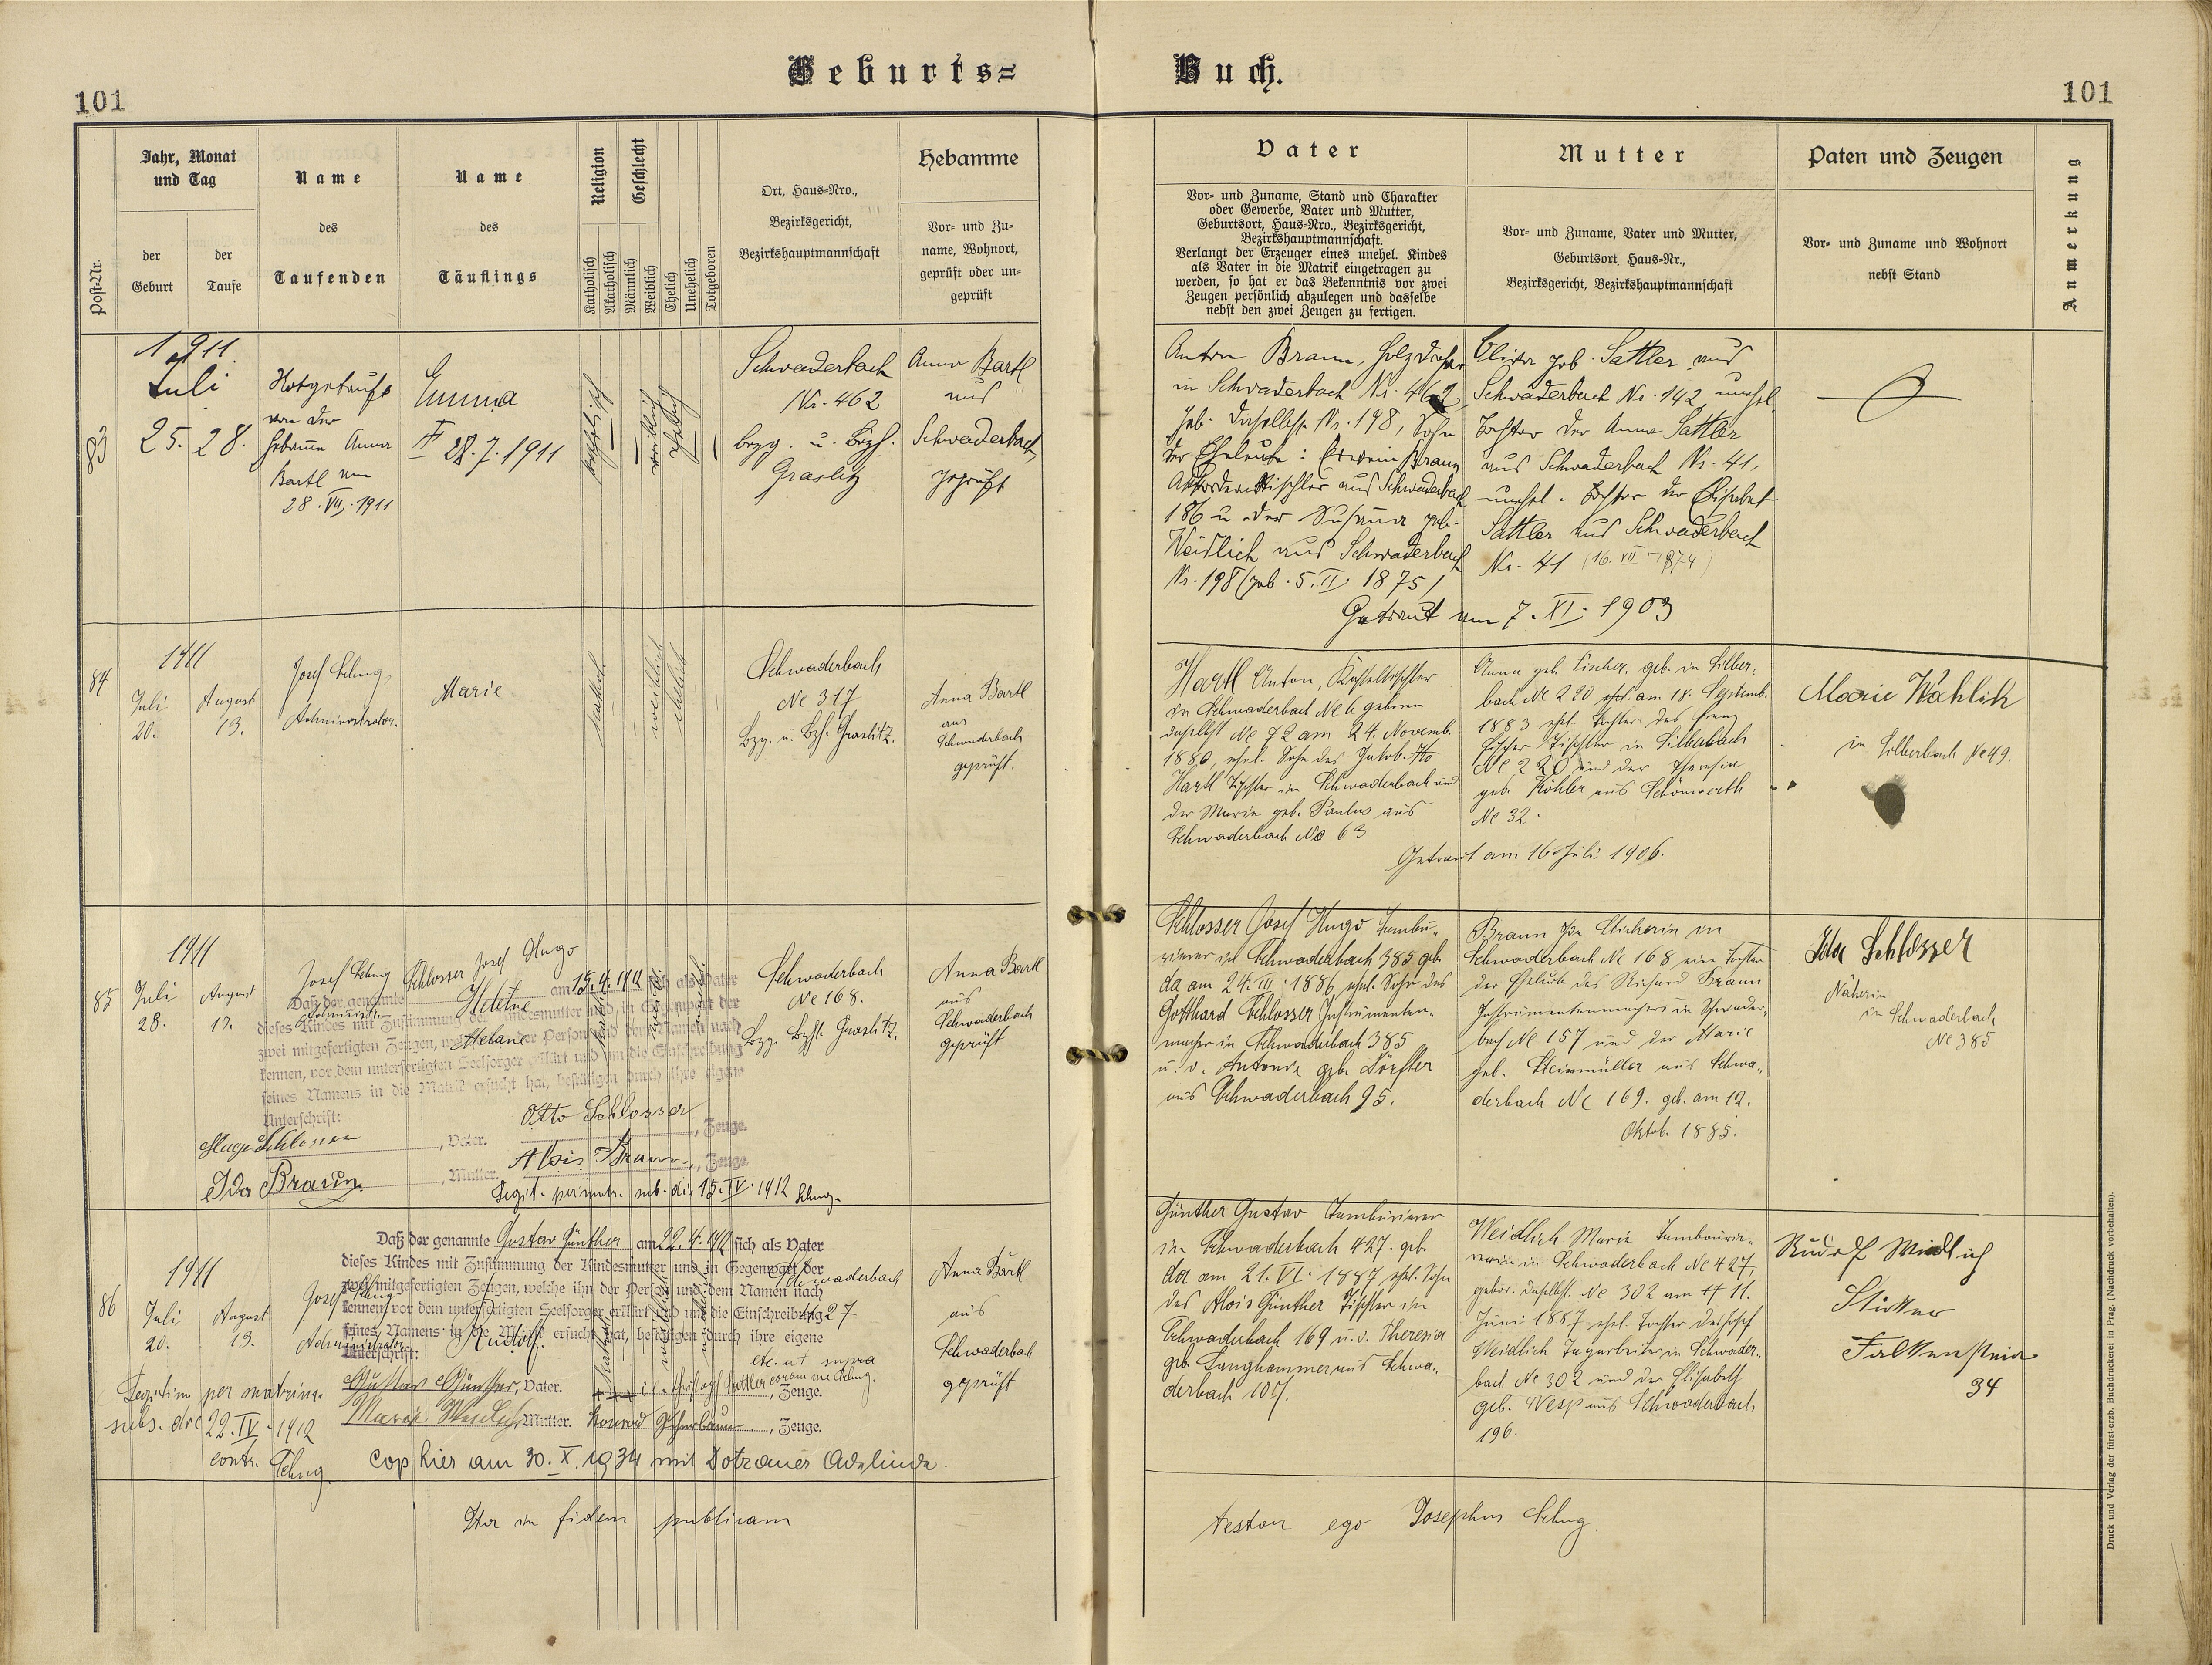 Geburts=
Buch.
101
101
Jahr, Monat
und Tag
der
Geburt
der
Taufe
Post-Nr.
Name
des
Taufenden
Name
des
Täuflings
Religion
Katholisch
Akatholisch
Geschlecht
Männlich
Weiblich
Ehelich
Unehelich
Totgeboren
Ort, Haus-Nro.,
Bezirksgericht,
Bezirkshauptmannschaft
Hebamme
Vor- und Zu-
name, Wohnort,
geprüft oder un-
geprüft
Vater
Vor- und Zuname, Stand und Charakter
oder Gewerbe, Vater und Mutter,
Geburtsort, Haus-Nro., Bezirksgericht,
Bezirkshauptmannschaft.
Verlangt der Erzeuger eines unehel. Kindes
als Vater in die Matrik eingetragen zu
werden, so hat er das Bekenntnis vor zwei
Zeugen persönlich abzulegen und dasselbe
nebst den zwei Zeugen zu fertigen.
Mutter
Vor- und Zuname, Vater und Mutter,
Geburtsort, Haus-Nr.,
Bezirksgericht, Bezirkshauptmannschaft
Paten und Zeugen
Vor- und Zuname und Wohnort
nebst Stand
Anmerkung
83
1911.
Juli
25. 28.
Notgetauft
von der
Hebamme Anna
Bartl am
28. VII. 1911
Emma
28. 7. 1911
katholisch
weiblich
ehelich
Schwaderbach
Nr. 462
bezg. u. Bezh.
Graslitz
Anna Bartl
aus
Schwaderbach,
geprüft
Anton Braun, Holzdreher
in Schwaderbach Nr. 462,
geb. daselbst Nr. 198, Sohn
der Eheleute: Erwin Braun
Akkordeontischler aus Schwaderbach
186 u. der Susanna geb.
Weidlich aus Schwaderbach
Nr. 198 (geb. 5. II. 1875)
geb. Sattler aus
Schwaderbach Nr. 142, unehel.
Tochter der Anna Sattler
aus Schwaderbach Nr. 41,
unehel. Tochter der Elisabet
Sattler aus Schwaderbach
Nr. 41 (16. VII 1874)
Getraut am 7. XI. 1903
84
1911
Juli
20.
August
13.
Josef Schug,
Administrator.
Marie
kathol.
weiblich
ehelich
Schwaderbach
No 317
Bzg. u. Bzh. Graslitz.
Anna Bartl
aus
Schwaderbach
geprüft.
Hartl Anton,
in Schwaderbach No 6 geboren
daselbst No 72 am 24. Novemb.
1880, ehel. Sohn des Jakob
Hartl Tischler in Schwaderbach und
der Marie geb. Paulus aus
Schwaderbach No 63
Anna geb. Fischer, geb. in Silber-
bach No 220 ehel. am 18. Septemb.
1883 ehel. Tochter des Franz
Fischer Tischler in Silberbach
No 220 und der Theresia
geb. Köhler aus Schönwerth
No 32.
Getraut am 16. Juli 1906.
Marie
in Silberbach No 49.
85
1911
Juli
28.
August
Josef Schug
Schlosser Josef Hugo
Daß der genannte
am 15. 4. 1912 sich als Vater
dieses Kindes mit Zustimmung der Kindesmutter und in Gegenwart der
zwei mitgefertigten Zeugen, welche ihn der Person und dem Namen nach
kennen, vor dem unterfertigten Seelsorger erklärt und um die Einschreibung
seines Namens in die Matrik ersucht hat, bestätigen durch ihre eigene
Unterschrift:
Hugo Schlosser, Vater.
Otto Schlosser, Zeuge.
Ida Braun, Mutter.
Alois Braun, Zeuge.
Legit. per matr. sub. die 15. IV. 1912 Schug.
Schwaderbach
No 168.
Bzg. Bzh. Graslitz.
Anna Bartl
aus
Schwaderbach
geprüft
Schlosser Josef Hugo Tambu-
rierer in Schwaderbach 385 geb.
da am 24. III. 1886 ehel. Sohn des
Gotthard Schlosser Instrumenten-
macher in Schwaderbach 385
u. d. Antonia geb. Dörfler
aus Schwaderbach 95.
Braun Ida Stickerin in
Schwaderbach No 168 eine Tochter
der Eheleute des Richard Braun
Instrumentenmachers in Schwader-
bach No 157 und der Marie
geb. Steinmüller aus Schwa-
derbach No 169. geb. am 12.
Oktob. 1885.
Ida Schlosser
Näherin
in Schwaderbach
No 385
86
1911
Juli
20.
August
13.
Josef Schug
Administrator
Rudolf.
Daß der genannte Gustav Günther am 22. 4. 1912 sich als Vater
dieses Kindes mit Zustimmung der Kindesmutter und in Gegenwart der
zwei mitgefertigten Zeugen, welche ihn der Person und dem Namen nach
kennen, vor dem unterfertigten Seelsorger erklärt und um die Einschreibung
seines Namens in die Matrik ersucht hat, bestätigen durch ihre eigene
Unterschrift:
Gustav Günther, Vater.
Sattler coram me Schug, Zeuge.
Marie Weidlich, Mutter.
Konrad, Zeuge.
Legitim per matrim.
subs. die 22. IV. 1912
contr. Schug
cop hier am 30. X. 1934 mit Dotzauer Adelinde
Schwaderbach
427
etc. ut supra
Anna Bartl
aus
Schwaderbach
geprüft
Günther Gustav Tamburierer
in Schwaderbach 427. geb.
da am 21. VI. 1887 ehel. Sohn
des Alois Günther Tischler in
Schwaderbach 169 u. d. Theresia
geb. Langhammer aus Schwa-
derbach 107.
Weidlich Marie Tambourie-
rerin in Schwaderbach No 427,
gebor. daselbst No 302 am 11.
Juni 1887 ehel. Tochter des Josef
Weidlich Tagarbeiter in Schwader-
bach No 302 und der Elisabeth
geb. Wesp aus Schwaderbach
196.
Rudolf Weidlich
Sticker
Falkenstein
34
Ita in fidem publicam
testor ego Josephus Schug.
Druck und Verlag der fürst-erzb. Buchdruckerei in Prag. (Nachdruck vorbehalten).